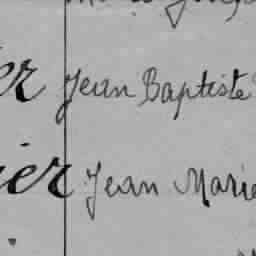 er Jean Baptiste
ier Jean Marie